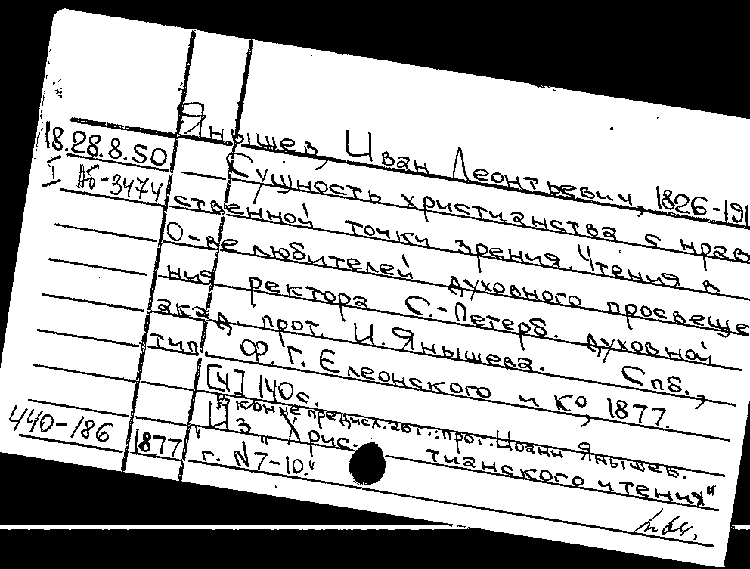 Янышев, Иван Леонтьевич, 1826-191
18.28.8.50
Сущность христианства с нрав
I Аб-3474
ственной точки зрения. Чтения в
О-ве любителей духовного просвеще
ния ректора С.-Петерб. духовной
акад. прот. И. Янышева. Спб.,
тип. Ф. Г. Елеонского и Ко, 1877.
[4] 140 с.
В конце предисл. авт.: прот. Иоанн Янышев.
440-186
Из "Христианского чтения"
1877 г. N 7-10."